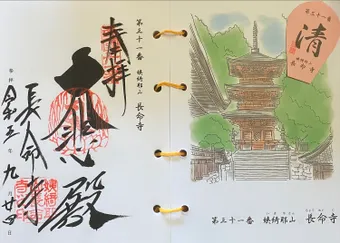 奉拝
第三十一番 姨綺耶山 長命寺
大悲殿
長命寺
参拝 令和五年 九月廿四日
第三十一番
清
姨綺耶山
長命寺
第三十一番 姨綺耶山 長命寺